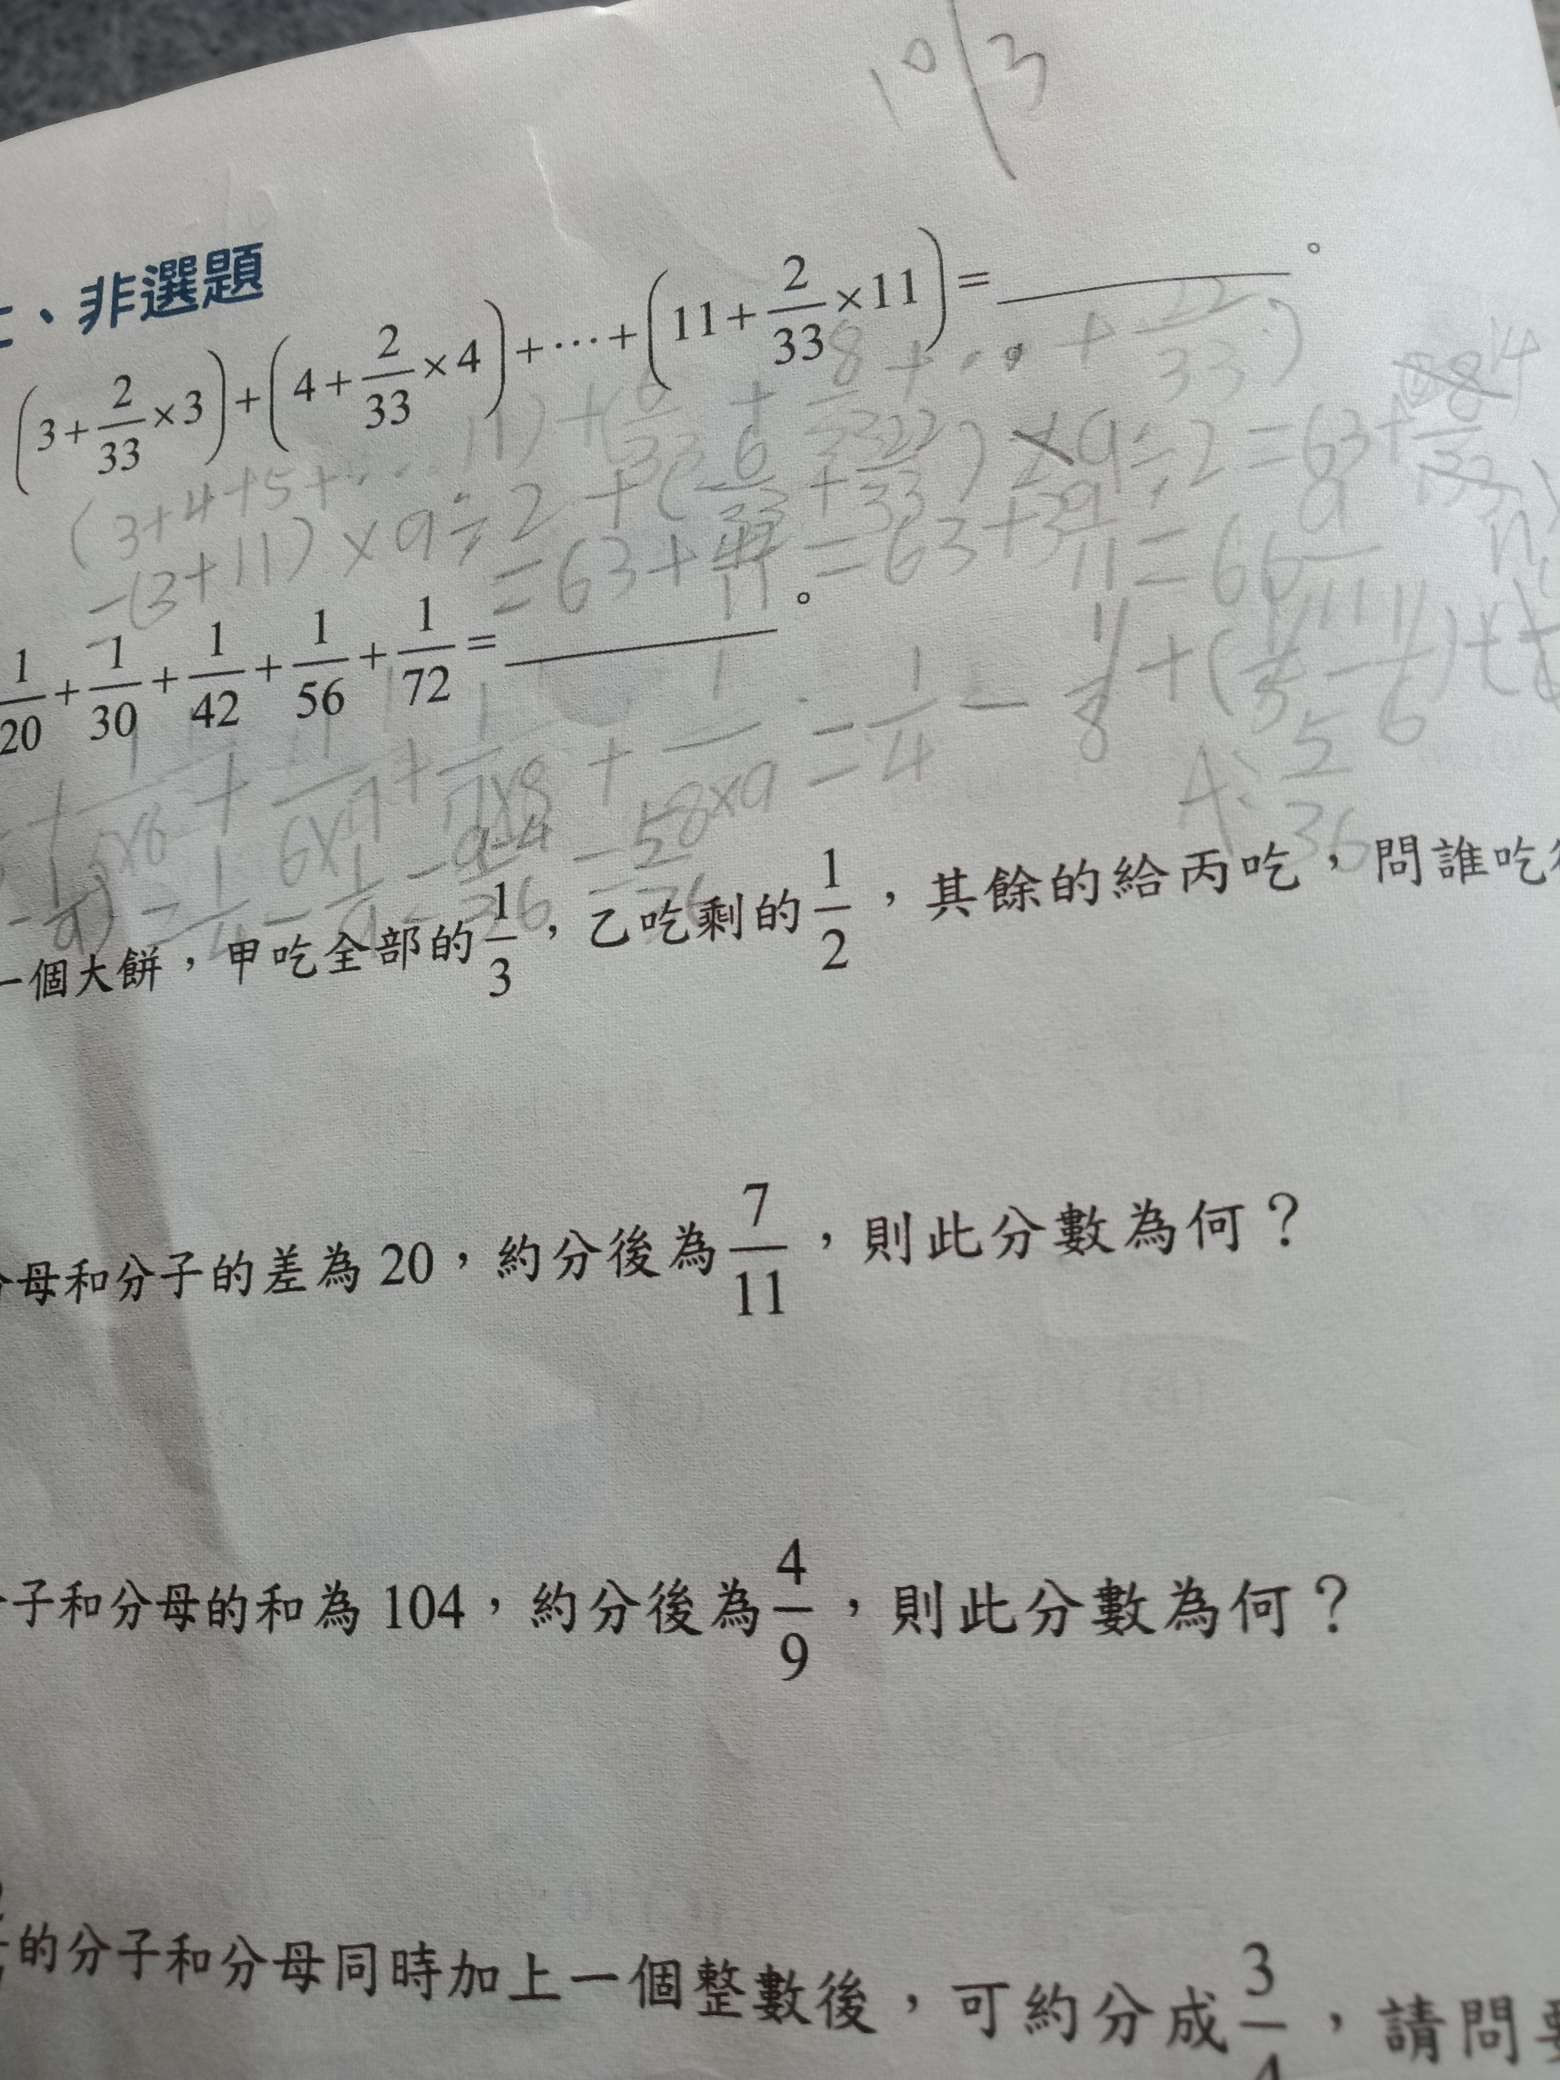 10/3
、非選題
(3+2/33×3)+(4+2/33×4)+⋯+(11+2/33×11)=______。
(3+4+5+...11)+(6/33+8/33+...+22/33)
=(3+11)×9÷2+(6/33+22/33)×9÷2=63+
=63+42/11=63+3 9/11=66 9/11
1/20+1/30+1/42+1/56+1/72=______。
1/5×6+1/6×7+1/7×8+1/8×9=1/4-
=1/4-1/9=9-4/36=5/36
A:5/36
一個大餅，甲吃全部的1/3，乙吃剩的1/2，其餘的給丙吃，問誰吃
母和分子的差為20，約分後為7/11，則此分數為何？
子和分母的和為104，約分後為4/9，則此分數為何？
的分子和分母同時加上一個整數後，可約分成3/4，請問要